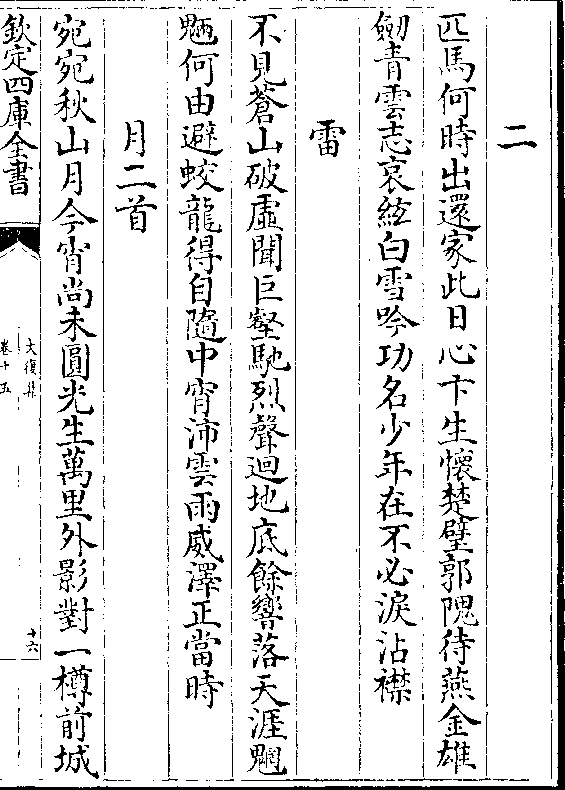 二
匹馬何時出還家此日心卞生懷楚璧郭隗待燕金雄
劒青雲志哀絃白雪吟功名少年在不必淚沾襟
雷
不見蒼山破虛聞巨壑馳烈聲迴地底餘響落天涯魍
魎何由避蛟龍得自隨中宵沛雲雨威澤正當時
月二首
宛宛秋山月今宵尚未圓光生萬里外影對一樽前城
欽定四庫全書
大復集
卷十五
十六